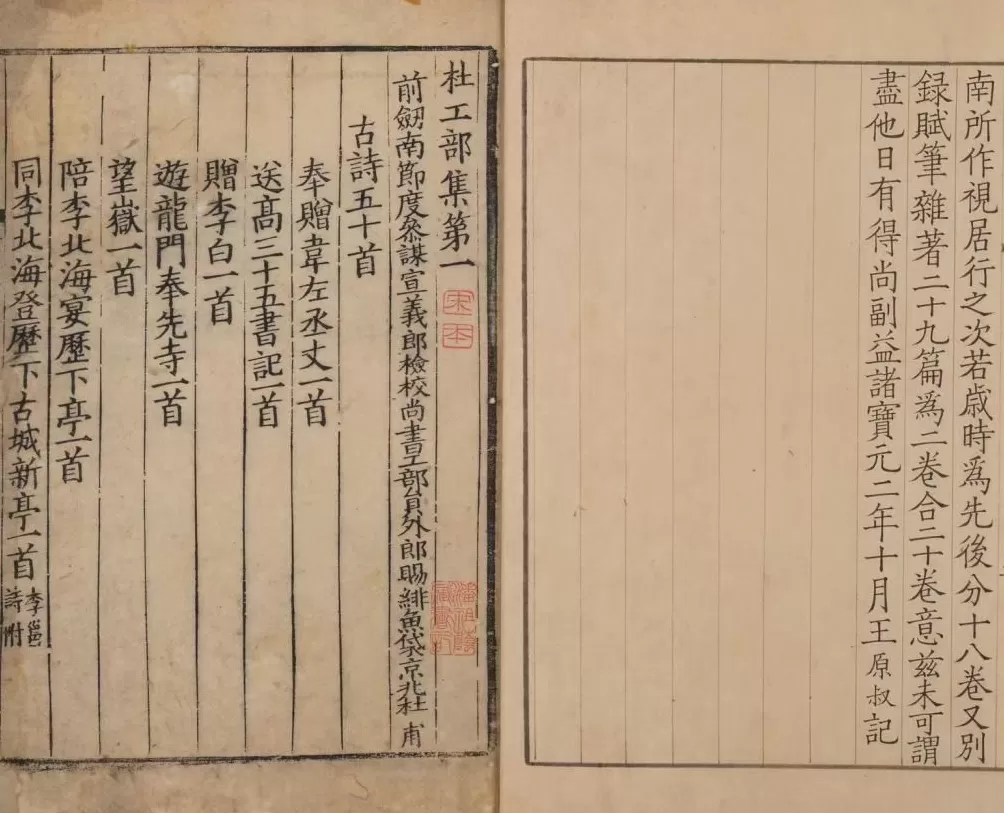 南所作視居行之次若歲時爲先後分十八卷又別
録賦筆雜著二十九篇爲二卷合二十卷意兹未可謂
盡他日有得尚副益諸寶元二年十月王原叔記
杜工部集第一
宋本
前劒南節度叅謀宣義郎檢校尚書工部員外郎賜緋魚袋京兆杜甫
古詩五十首
奉贈韋左丞丈一首
送髙三十五書記一首
贈李白一首
遊龍門奉先寺一首
望嶽一首
陪李北海宴歷下亭一首
同李北海登歷下古城新亭一首
李邕
詩附